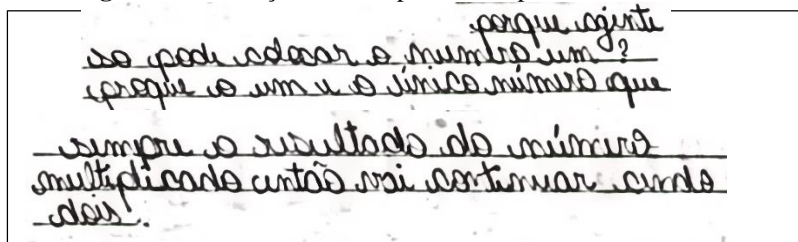 porque aginte
so pode colocar o numero um ?
proque o um e o único número que
sempre o resultado do número
multiplicado então vai continuar sendo
dois.